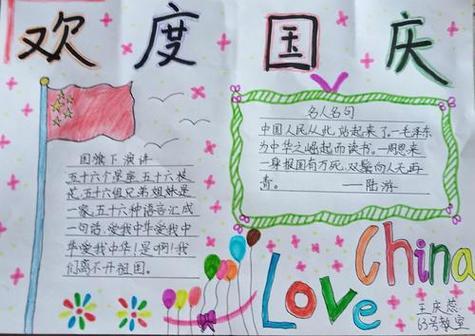 欢度国庆
国旗下演讲
五十六个星座五十六枝
花,五十六组兄弟姐妹是
一家,五十六种语言汇成
一句话,爱我中华爱我中
华爱我中华!是啊!我
们离不开祖国。
名人名句
中国人民从此站起来了。—毛泽东
为中华之崛起而读书。—周恩来
一身报国有万死,双鬓向人无再
青。——陆游
Love China
王庆蕊
63号教室